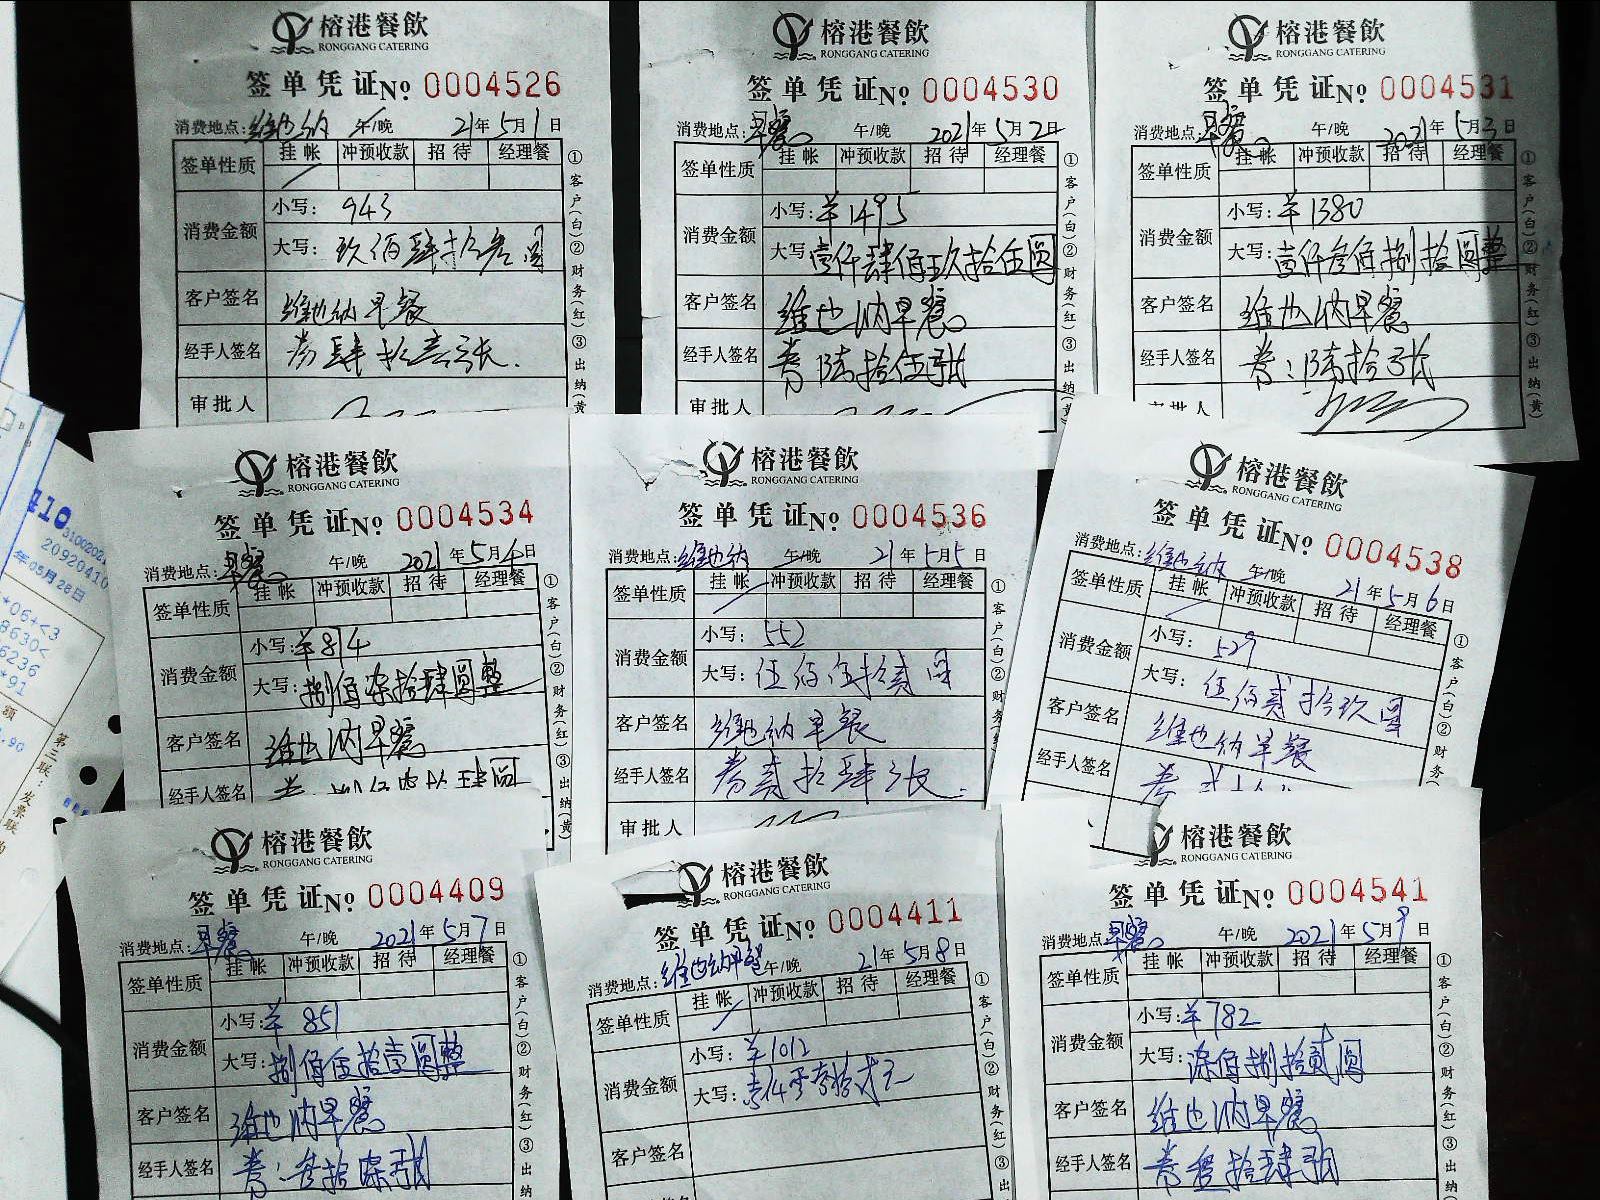 榕港餐飲
RONGGANG CATERING
签单凭证No 0004526
消费地点:维也纳 午/晚 21年5月1日
签单性质 挂帐 冲预收款 招待 经理餐
消费金额 小写: 943
大写: 玖佰肆拾叁圆
客户签名 维也纳早餐
经手人签名 券肆拾壹张.
审批人
①客户(白)②财务(红)③出纳(黄)
榕港餐飲
RONGGANG CATERING
签单凭证No 0004530
消费地点:早餐 午/晚 2021年5月2日
签单性质 挂帐 冲预收款 招待 经理餐
消费金额 小写:¥1495
大写:壹仟肆佰玖拾伍圆
客户签名 维也纳早餐
经手人签名 券陆拾伍张
审批人
①客户(白)②财务(红)③出纳(黄)
榕港餐飲
RONGGANG CATERING
签单凭证No 0004531
消费地点:早餐 午/晚 2021年5月3日
签单性质 挂帐 冲预收款 招待 经理餐
消费金额 小写:¥1380
大写:壹仟叁佰捌拾圆整
客户签名 维也纳早餐
经手人签名 券:陆拾张
审批人
①客户(白)②财务(红)③出纳(黄)
榕港餐飲
RONGGANG CATERING
签单凭证No 0004534
消费地点:早餐 午/晚 2021年5月4日
签单性质 挂帐 冲预收款 招待 经理餐
消费金额 小写:¥874
大写:捌佰柒拾肆圆整
客户签名 维也纳早餐
经手人签名
①客户(白)②财务(红)③出纳(黄)
榕港餐飲
RONGGANG CATERING
签单凭证No 0004536
消费地点:维也纳 午/晚 21年5月5日
签单性质 挂帐 冲预收款 招待 经理餐
消费金额 小写: 552
大写:伍佰伍拾贰圆
客户签名 维也纳早餐
经手人签名 券贰拾肆张.
审批人
①客户(白)②财务(红)
榕港餐飲
RONGGANG CATERING
签单凭证No 0004538
消费地点:维也纳 午/晚 21年5月6日
签单性质 挂帐 冲预收款 招待 经理餐
消费金额 小写: 529
大写: 伍佰贰拾玖圆
客户签名 维也纳早餐
经手人签名
①客户(白)②财务
榕港餐飲
RONGGANG CATERING
签单凭证No 0004409
消费地点:早餐 午/晚 2021年5月7日
签单性质 挂帐 冲预收款 招待 经理餐
消费金额 小写:¥851
大写:捌佰伍拾壹圆整
客户签名 维也纳早餐
经手人签名 券:叁拾柒张
①客户(白)②财务(红)③出纳
榕港餐飲
RONGGANG CATERING
签单凭证No 0004411
消费地点:维也纳早餐 午/晚 21年5月8日
签单性质 挂帐 冲预收款 招待 经理餐
消费金额 小写:¥1012
大写:壹仟零壹拾贰元
客户签名
①客户(白)②财务(红)③出
榕港餐飲
RONGGANG CATERING
签单凭证No 0004541
消费地点:早餐 午/晚 2021年5月9日
签单性质 挂帐 冲预收款 招待 经理餐
消费金额 小写:¥782
大写:柒佰捌拾贰圆
客户签名 维也纳早餐
经手人签名 券叁拾肆张
①客户(白)②财务(红)③出纳
20920410
年05月28日
*06+<3
8630<
6236
*91
额
.90
第三联:发票联